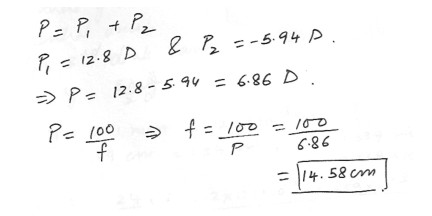 P = P₁ + P₂
P₁ = 12.8 D & P₂ = -5.94 D.
⇒ P = 12.8 - 5.94 = 6.86 D.
P = 100/f ⇒ f = 100/P = 100/6.86
= 14.58 cm